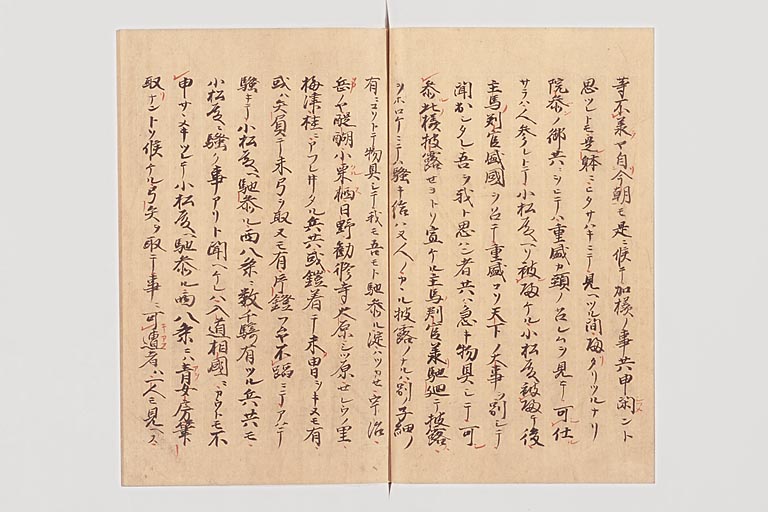 等不義ヤ自今朝モ是ニ候テ加様ノ事共申聞ント
思ツレトモ其躰ニヒタサハキニテ見ヘツル間帰タリツルナリ
院参ノ御共シニテハ重盛カ頭ノ召レムヲ見テ可仕
サラハ人参レトテ小松殿ヘソ被帰ケル小松殿被帰テ後
主馬判官盛國ヲ召テ重盛コソ天下ノ大事ヲ別シテ
聞出シタレ吾ヲ我ト思ハン者共ハ急キ物具シテ可
参此様披露セヨトソ宣ケル主馬判官承馳廻テ披露
ヲホロケニテハ騒キ給ハヌ人ノアル披露ノアルハ別ノ子細ノ
有ニコソトテ物具シテ我モ吾モト馳参ル淀ハツカセ宇治
岳ノヤ醍醐小栗栖日野勧修寺大原シツ原セレウノ里
梅津桂ニアフレ井タル兵共或鎧着テ未甲ヲキヌモ有
或ハ矢負テ未弓ヲ取ヌモ有片鐙フムヤ不蹈ニテアハテ
騒キテ小松殿ヘ馳参ル西八条ニ数千騎有ツル兵共モ
小松殿ニ騒ク事アリト聞ヘケレハ入道相國ニカウトモ不
申サヽメキツレテ小松殿ヘ馳参ル西八条ニハ青女房集
取ナントソ候ケル弓矢ヲ取テ事ニ可遭者ハ一人モ見ヘス